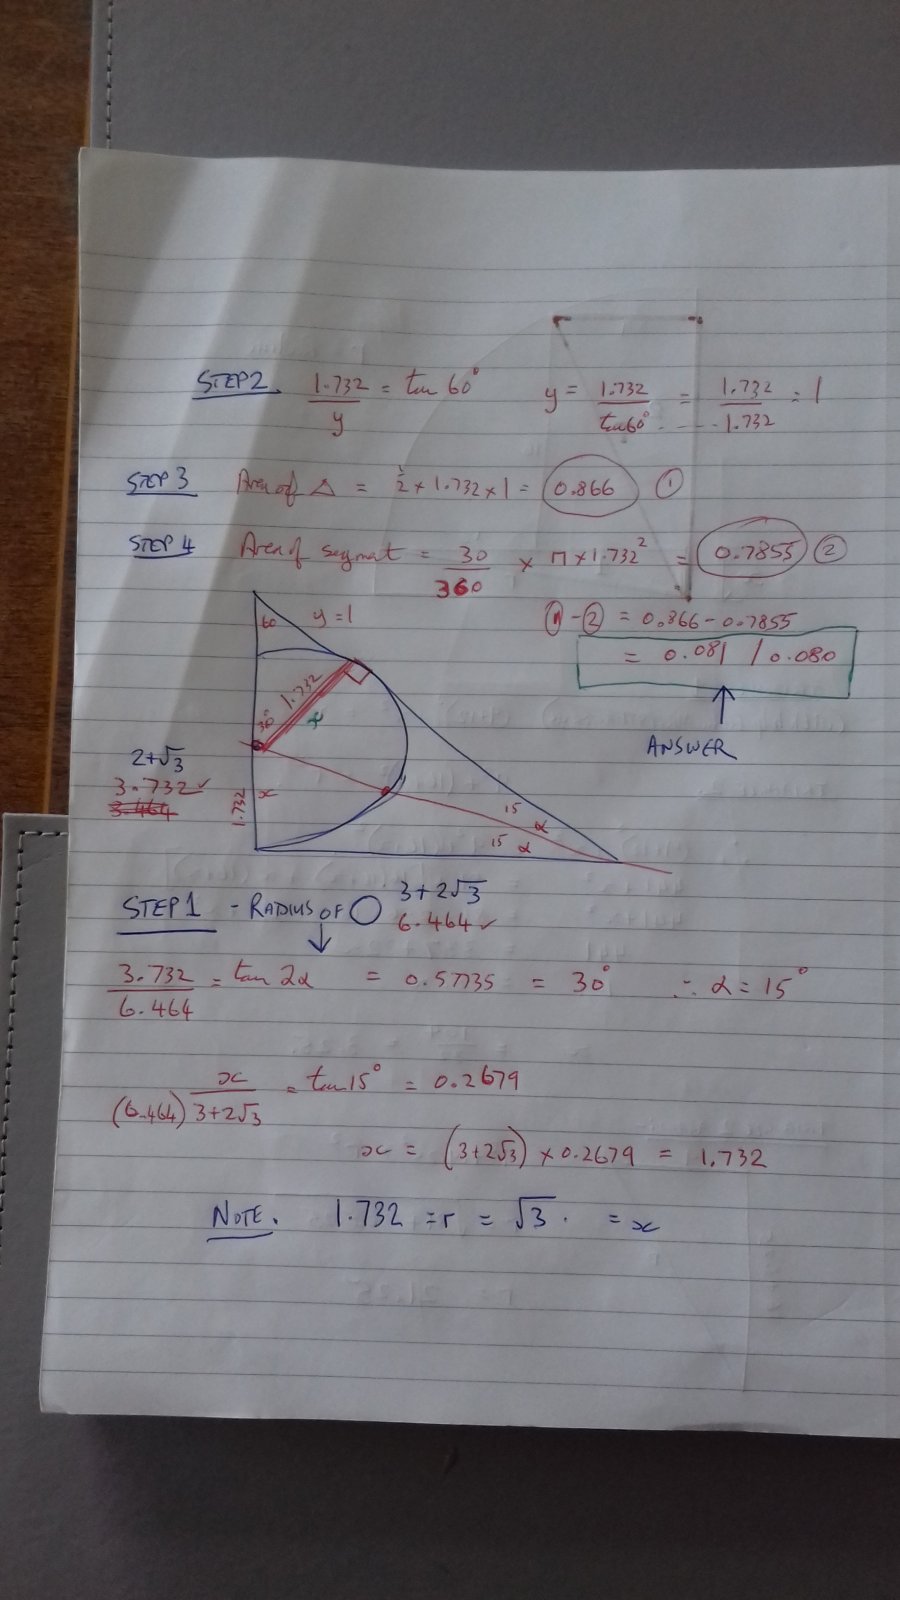 STEP 2. 1.732 / y = tan 60° y = 1.732 / tan 60° = 1.732 / 1.732 = 1
STEP 3 Area of △ = ½ × 1.732 × 1 = 0.866 ①
STEP 4 Area of segmat = 30 / 360 × π × 1.732² = 0.7855 ②
① - ② = 0.866 - 0.7855
= 0.081 / 0.080
ANSWER
60 y = 1
1.732
30° x
2+√3
3.732 ✓
3.464
1.732 x
15 α
15 α
STEP 1 - RADIUS OF ○ 3+2√3
6.464 ✓
3.732 / 6.464 = tan 2α = 0.57735 = 30° ∴ α = 15°
(6.464) x / 3+2√3 = tan 15° = 0.2679
x = (3+2√3) × 0.2679 = 1.732
NOTE. 1.732 = r = √3. = x